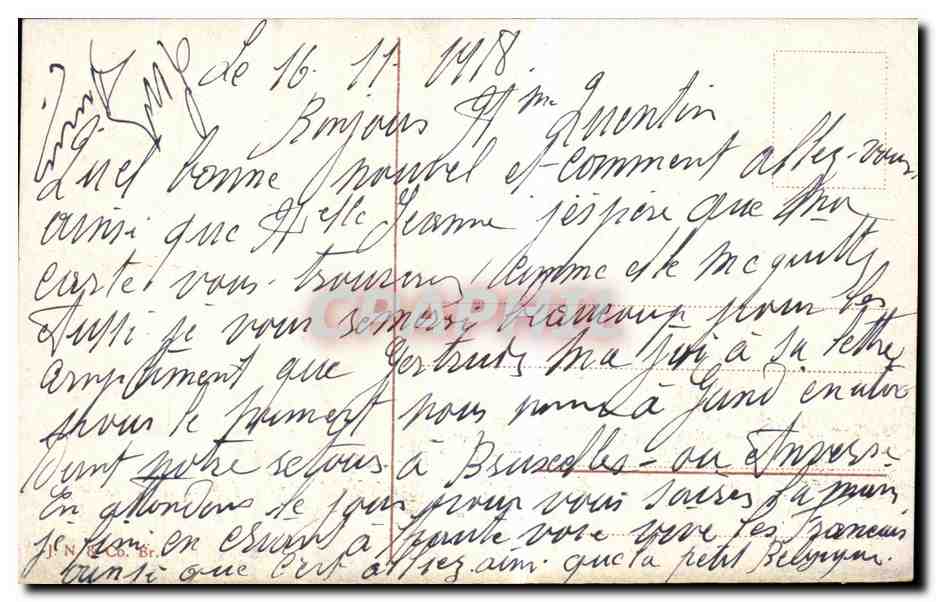 Le 16. 11. 1918.
Bonjour Mme Quentin
Quel bonne nouvel et comment allez-vous,
ainsi que Melle Jeanne j'espère que ma
carte vous trouveres comme elle me quitte
Aussi je vous remerci beaucoup pour les
que Gertrude ma à sa lettre
pour le moment nous à Gand en
notre retour à Bruxelles - ou Anvers.
En attendans le jour pour vous la main
je fini en criant à haute voie vive les Francais
que alliez ainsi que la petit Belgique.
J. N. & Co. Br.
CPAPHIL